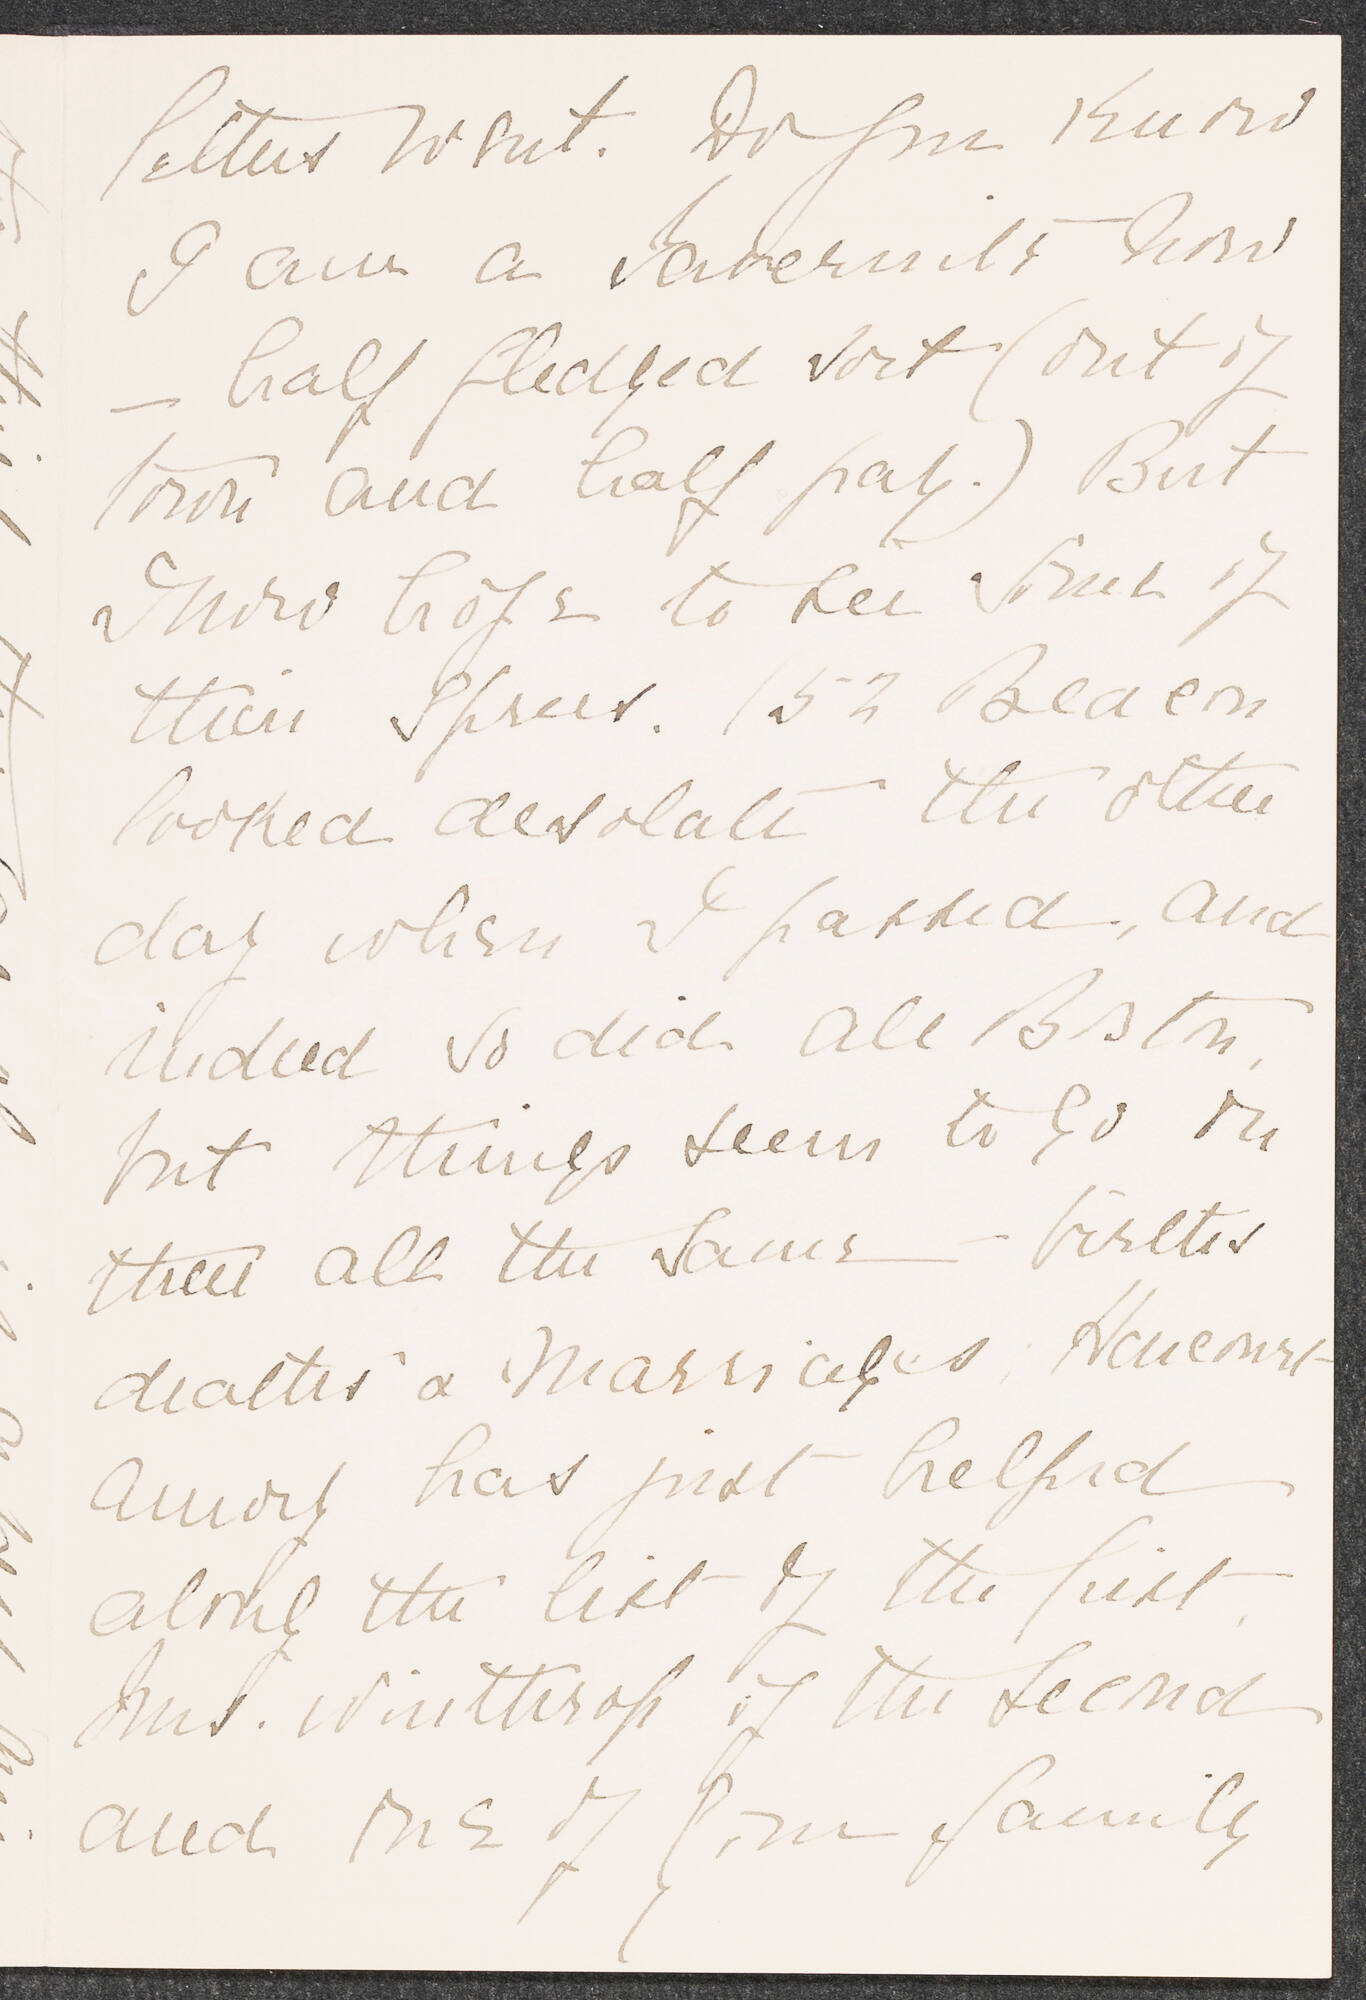 letters went. Do you know
I am a Tavernite now
– half fledged sort (out of
town and half pay.) But
I now hope to see some of
their sprees. 152 Beacon
looked desolate the other
day when I passed, and
indeed so did all Boston,
but things seem to go on
there all the same – births
deaths & marriages; Harcourt
Amory has just helped
along the list of the first,
Mrs. Winthrop of the second
and one of your family